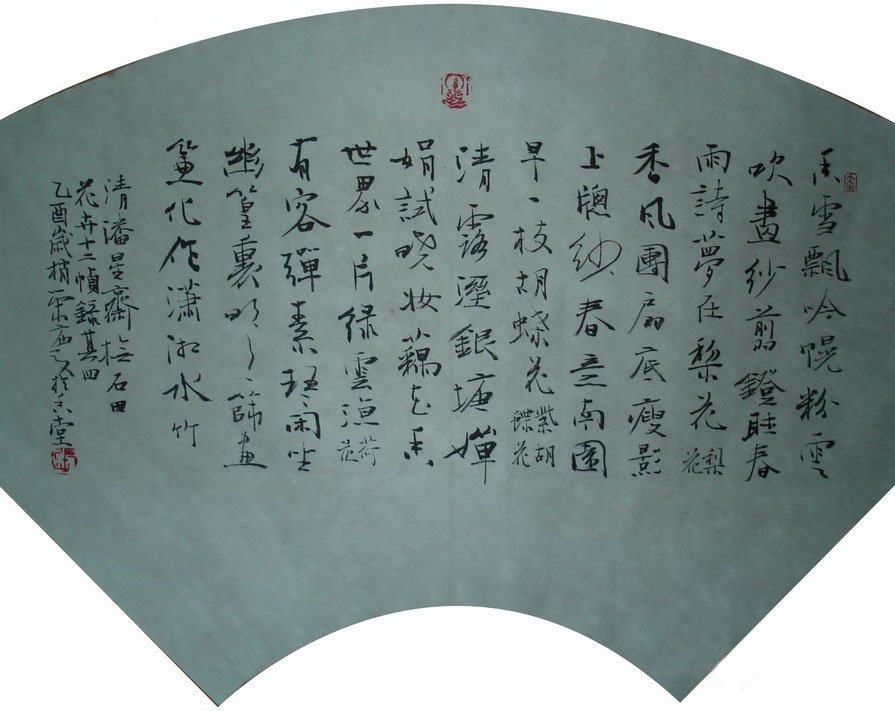 香雪飄吟幌粉雲
吹畫紗剪鐙聽春
雨詩夢在梨花 梨花
香风團扇底瘦影
上牕紗春意南園
早一枝胡蝶花 紫胡蝶花
清露溼銀塘嬋
娟試曉妝藕花香
世界一片绿雲涼 荷花
有客彈素琴閑坐
幽篁裏明月篩畫
簾化作瀟湘水 竹
清潘星齋撫石田
花卉十二幀錄其四
乙酉歲梢 於 堂